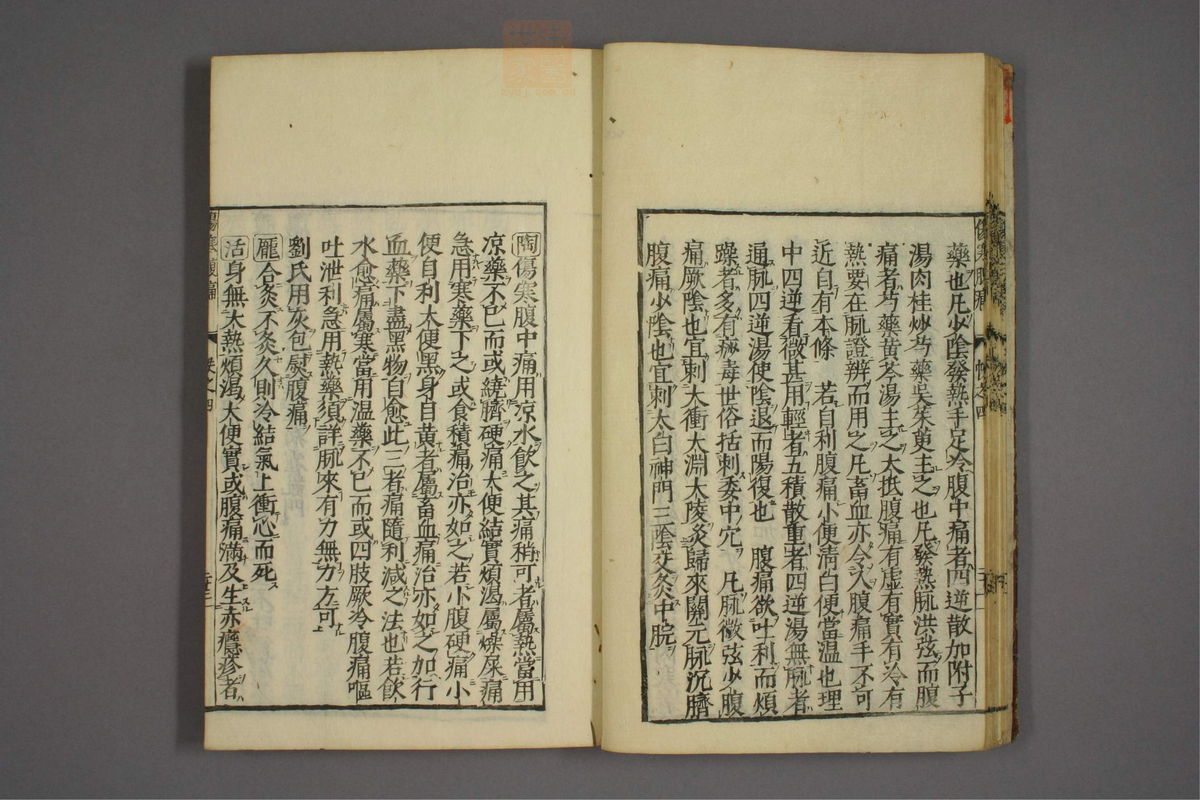 藥也凡少陰發熱手足冷腹中痛者四逆散加附子
湯肉桂炒芍藥吳茱萸主之也凡發熱脉洪弦而腹
痛者芍藥黃芩湯主之大抵腹痛有虛有實有冷有
熱要在脉證辨而用之凡畜血亦令人腹痛手不可
近自有本條　若自利腹痛小便清白便當温也理
中四逆看微甚用輕者五積散重者四逆湯無脉者
通脉四逆湯使陰退而陽復也　腹痛欲吐利而煩
躁者多有痧毒世俗括刺委中穴　凡脉微弦少腹
痛厥陰也宜刺太衝大淵太陵灸歸來關元脉沉臍
腹痛少陰也宜刺太白神門三陰交灸中脘
陶傷寒腹中痛用凉水飲之其痛稍可者屬熱當用
凉藥不已而或繞臍硬痛大便結實煩渴屬燥屎痛
急用寒藥下之或食積痛治亦如之若小腹硬痛小
便自利大便黑身目黃者屬畜血痛治亦如之加行
血藥下盡黑物自愈此三者痛隨利減之法也若飲
水愈痛屬寒當用温藥不已而或四肢厥冷腹痛嘔
吐泄利急用熱藥須詳脉來有力無力方可
劉氏用灰包熨腹痛
龐合灸不灸久則冷結氣上衝心而死
活身無大熱煩渴大便實或腹痛滿及生赤癮疹者
傷寒腹痛
卷之四